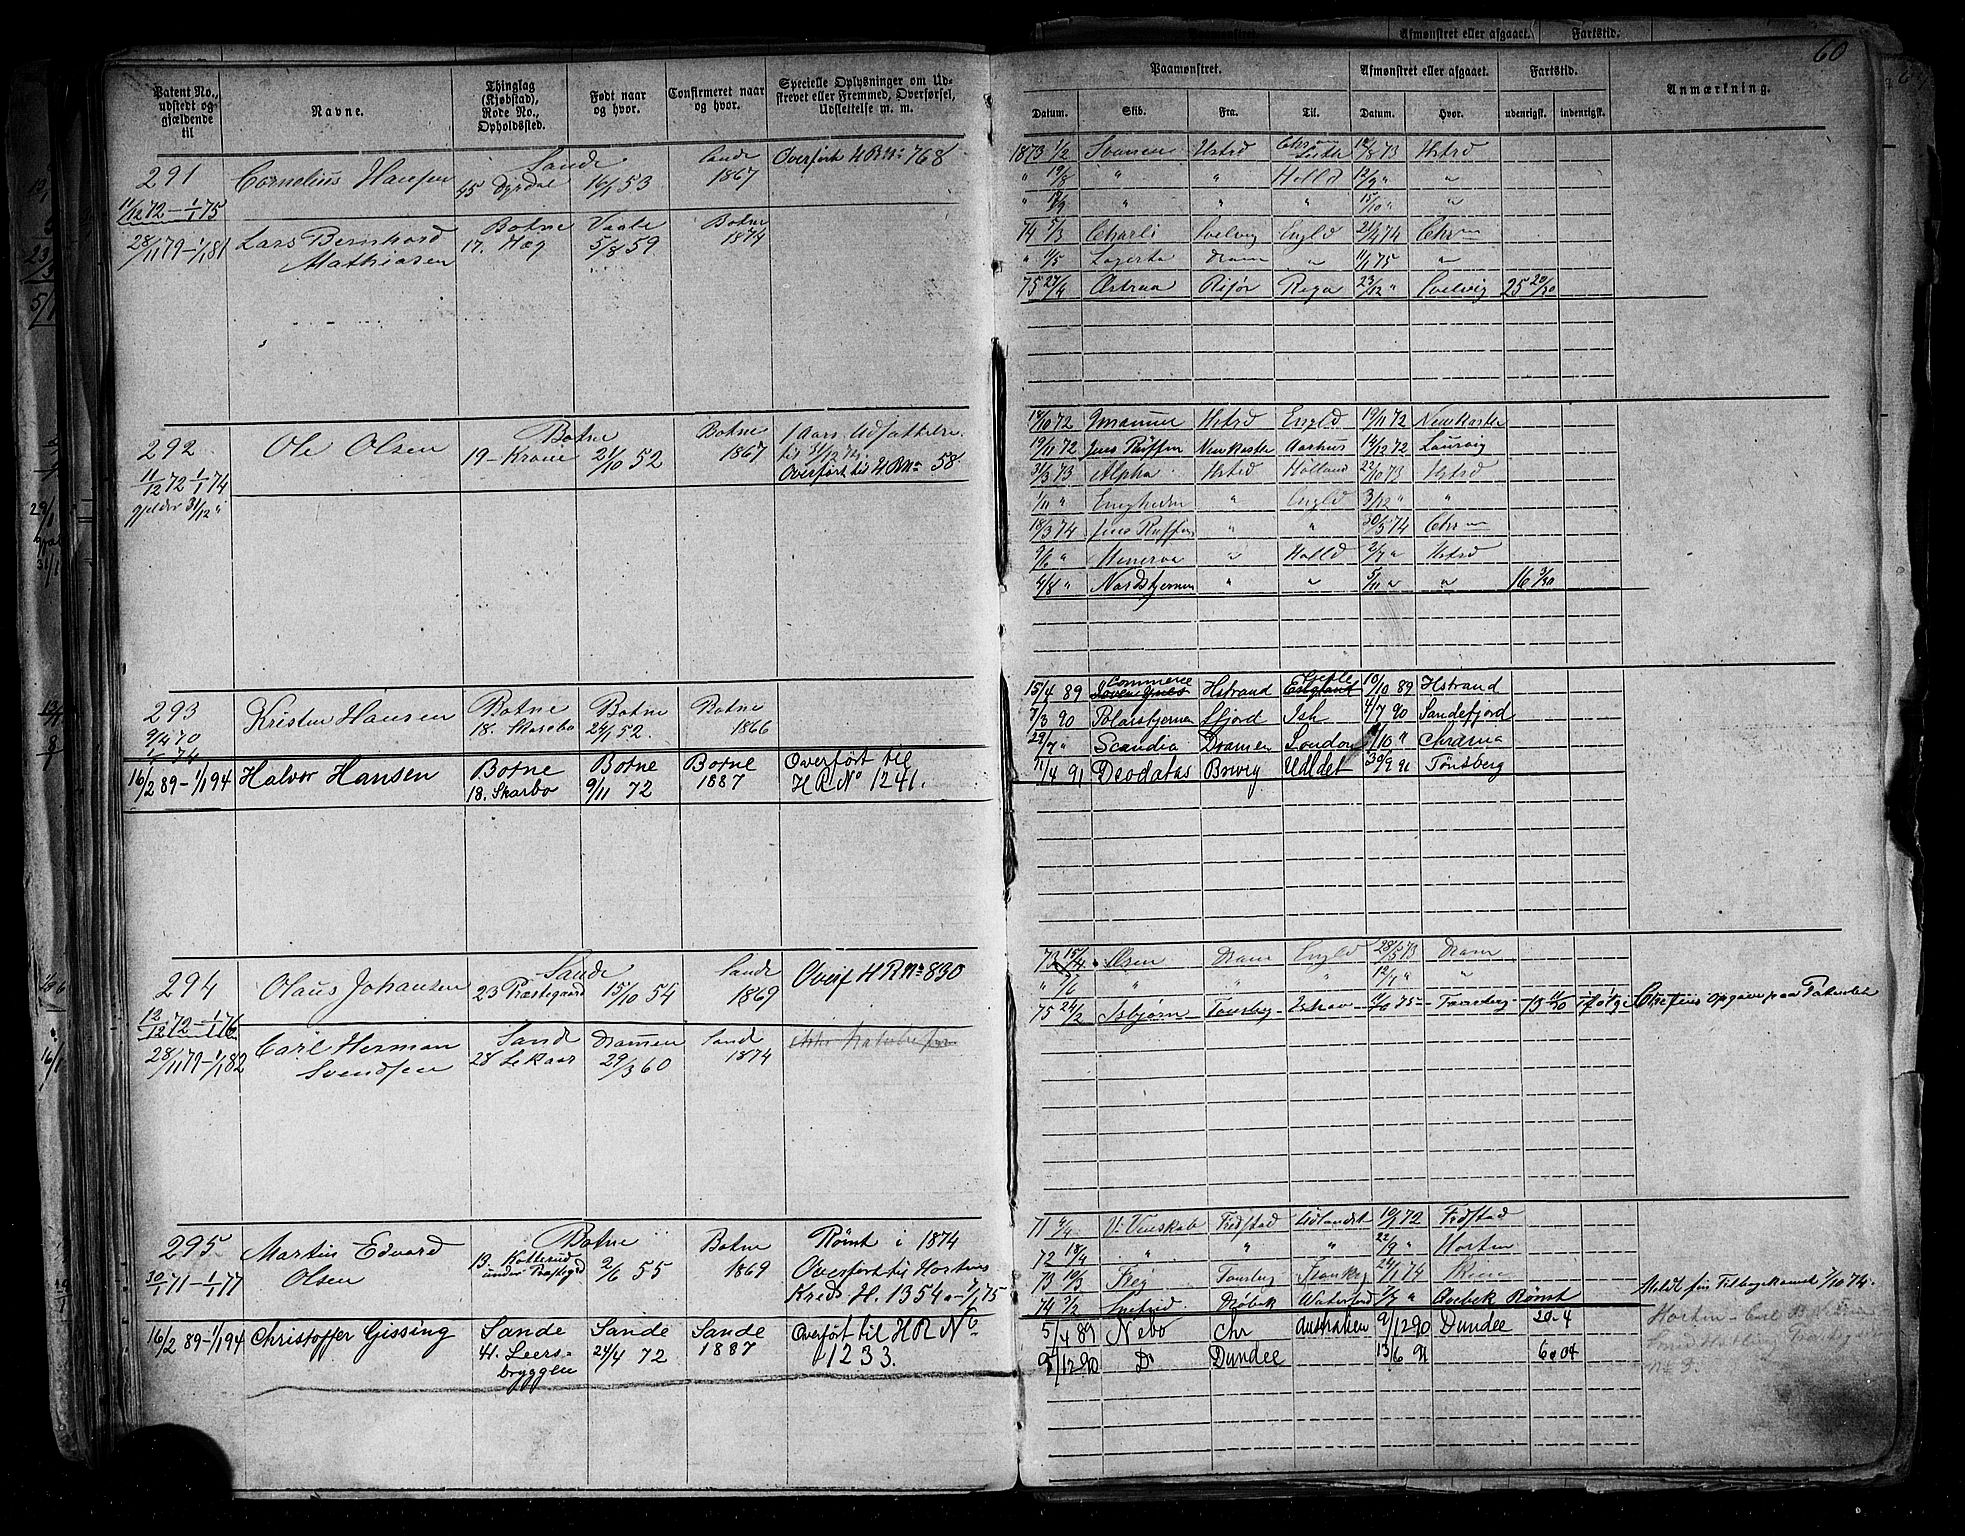 60
Patent No., udstedt og gjældende til
Navne.
Thinglag (Kjøbstad), Rode No., Opholdssted.
Født naar og hvor.
Confirmeret naar og hvor.
Specielle Oplysninger om Udskrevet eller Fremmed, Overførsel, Udslettelse m. m.
Paamønstret.
Afmønstret eller afgaaet.
Fartstid.
Anmærkning.
Datum. Skib. Fra. Til. Datum. Hvor. udenrigsk. indenrigsk.
291 Cornelius Hansen Sande 45 Dyrdal 16/1 53 Sande 1867 Overført HR No 768
11/12 72 – 1/1 75
28/11 79 – 1/1 81 Lars Bernhard Mathiasen Botne 17. Haag Vaale 5/8 59 Botne 1874
1873 1/2 Svanen Hstrd 18/8 73 Hstrd
" 19/8 " " Holld 12/9 " "
" 17/9 " " " 15/10 " "
74 5/3 Charli Svelvig Engld 21/4 74 Chr
" 11/5 Lagerta Dram " 11/1 75 "
75 27/4 Astraa Risør Riga 23/12 " Svelvig 25 20/30
292 Ole Olsen Botne 19 – Krane 21/10 52 Botne 1867 1 Aars Udsættelse til 31/12 72
Overført til HR No 58
11/12 72 – 1/1 74
gjelder 31/12 "
14/10 72 Immanuel Hstrd Engld 19/11 72 NewKastle
19/11 72 Jens Ruffen NewKastle Aarhus 14/12 72 Laurvig
31/3 73 Alpha Hstrd Holland 22/10 73 Hstrd
1/11 " Enigheden " Engld 3/12 " "
18/3 74 Jens Ruffen " " 30/5 74 Chr
9/6 " Minerva " Holld 2/7 " Hstrd
4/8 " Nordstjernen " " 5/11 " " 16 3/30
293 Kristen Hansen Botne 18. Skarebo Botne 24/1 52. Botne 1866
9/4 70
1/1 74
16/2 89 – 1/1 94 Halvor Hansen Botne 18. Skarbo Botne 9/11 72 Botne 1887 Overført til HR No 1241.
15/4 89 Commerce Hstrand Gefle England 10/10 89 Hstrand
7/3 90 Polarstjernen Sfjord Ish 4/7 90 Sandefjord
29/7 " Scandia Dramen London 1/10 " Chrania
11/4 91 Deodatas Brevig Udldet 30/9 91 Tønsberg
294 Olaus Johansen Sande 23 Præstegaard 15/10 54 Sande 1869 Overf HR No 830
12/12 72 – 1/1 76
28/11 79 – 1/1 82 Carl Herman Svendsen Sand 28 Lekaas Dramen 29/3 60 Sand 1874
73 15/4 Olsen Dram Engld 28/5 73 Dram
" 7/6 " " " 12/7 " "
75 24/2 Isbjørn Tønsberg Ishav 11/6 75 – Tønsberg
295 Martin Edvard Olsen Botne 13. Kotterud under Præstegrd 2/6 55 Botne 1869 Rømt i 1874
Overført til Hortens Kreds H. 1354 a 7/1 75
30/1 71 – 1/1 77
16/2 89 – 1/1 94 Christoffer Gissing Sande 41. Leersbryggen Sande 24/4 72 Sande 1887 Overført til HR No 1233.
71 4/4 Venskab Fredstad Udlandet 19/1 72 Fredstad
72 18/4 " " " 22/9 " Horten
73 10/3 Frey Tønsberg 24/1 74
74 7/2 Drøbak Waterford 1/7 " Qvebek Rømt
5/4 89 Nebo Chr Australien 9/12 90 Dundee 20-4
9/12 90 Do Dundee 13/6 91 6 04